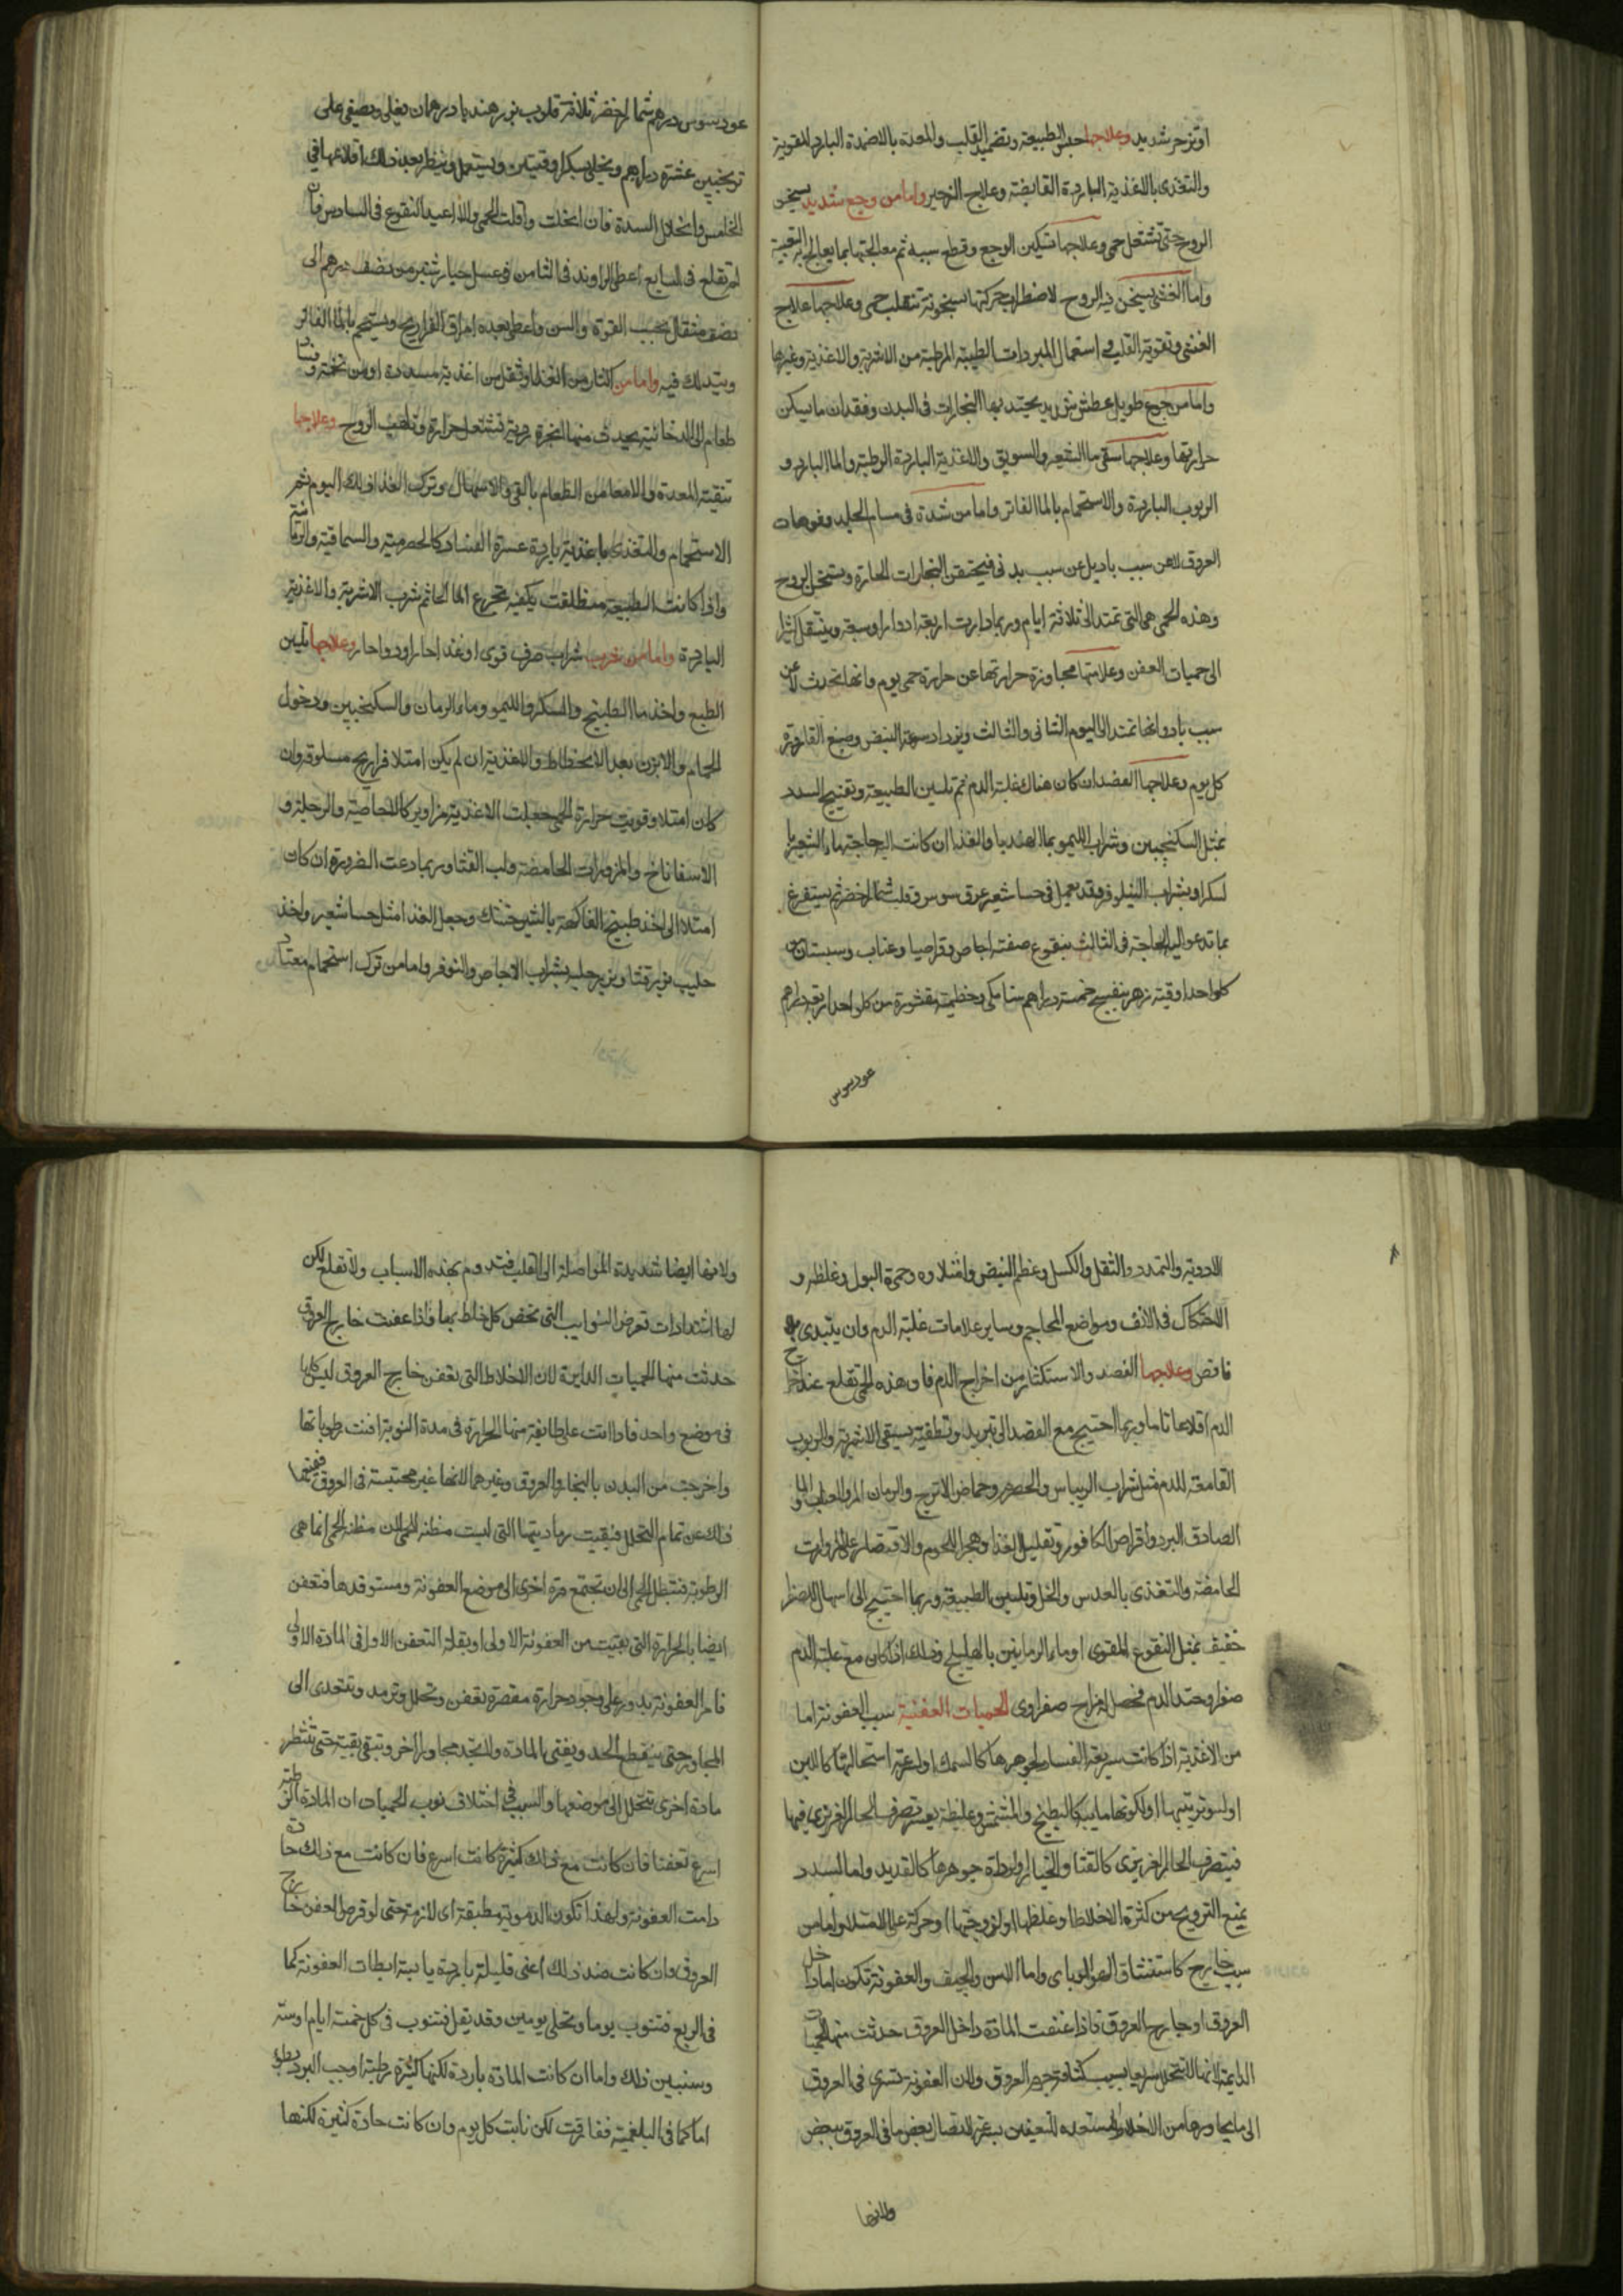 او تزحر شديد وعلاجها حبس الطبيعة وتضميد القلب والمعدة بالاضمدة الباردة المقوية
والتغذى بالاغذية الباردة القابضة وعلاج الزحير واما من وجع شديد يسخن
الروح حتى تشتعل حمى وعلاجها تسكين الوجع وقطع سببه ثم معالجتها بما يعالج به التعبية
واما الغشى يسخن فيه الروح لاضطراب حركتها سخونة تنقلب حمى وعلاجها علاج
الغشى وتقوية القلب فى استعمال المبردات الطيبة المرطبة من الاشربة والاغذية وغيرها
واما من جوع طويل وعطش شديد يحتد بها البخارات فى البدن وفقدان ما يسكن
حرارتها وعلاجها سقى ماء الشعير والسويق والاغذية الباردة الرطبة والماء البارد و
الربوب الباردة والاستحمام بالماء الفاتر واما من شدة فى مسام الجلد وفوهات
العروق لا عن سبب باد بل عن سبب بدنى فيحتقن البخارات الحارة ويسخن الروح
وهذه الحمى هى التى تمتد الى ثلاثة ايام وربما دارت اربعة ادوار او سبعة وينتقل كثيرا
الى حميات العفن وعلامتها مجاوزة حرارتها عن حرارة حمى يوم وانها تحدث لا عن
سبب باد وانها تمتد الى اليوم الثانى والثالث ويزداد سرعة النبض وصبغ القارورة
كل يوم وعلاجها الفصد ان كان هناك غلبة الدم ثم تليين الطبيعة وتفتيح السدد
بمثل السكنجبين وشراب الليمو بماء الهندبا والغذا ان كانت اليه حاجة ماء الشعير با
لسكر او بشراب النيلوفر وقد يعمل فى حسا شعير عرق سوس وقلب شمار اخضر ثم يستفرغ
بما تدعو اليه الحاجة فى الثالث بنقوع صفته اجاص وقراصيا وعناب وسبستان من
كل واحد اوقية زهر بنفسج خمسة دراهم سنا مكى وخطمية مقشورة من كل واحد اربعة دراهم
عود سوس
عود سوس درهم شمار اخضر ثلاثة قلوب بزر هندبا درهمان يغلى ويصفى على
ترنجبين عشرة دراهم ويحلى بسكر اوقيتين ويستعمل وينظر بعد ذلك اقلاعها فى
الخامس وانحلال السدة فان انحلت واقلت الحمى والا اعيد النقوع فى السادس فان
لم تقلع فى السابع اعطى الراوند فى الثامن فى عسل خيار شنبر من نصف درهم الى
نصف مثقال بحسب القوة والسن واعطى بعده امراق الفراريج ويستحم بالماء الفاتر
ويتدلك فيه واما من اكثار من الغذا او ثقل من اغذية مسددة او من تخمة وفساد
طعام الى الدخانية يحدث منها ابخرة ردية تشتعل حرارة وتلهب الروح وعلاجها
تنقية المعدة والامعا من الطعام بالقى والاسهال وترك الغذا ذلك اليوم ثم
الاستحمام والتغذى باغذية باردة عسرة الفساد كالحصرمية والسماقية والرمانية
واذا كانت الطبيعة منطلقت يكفيه تجرع الماء الحار ثم شرب الاشربة والاغذية
الباردة واما من شرب شراب صرف قوى او غذا حار او دوا حار وعلاجها تليين
الطبع واخذ ماء البطيخ والسكر والليمو وماء الرمان والسكنجبين ودخول
الحمام والابزن بعد الانحطاط والاغذية ان لم يكن امتلا فراريج مسلوقة وان
كان امتلا وقويت حرارة الحمى جعلت الاغذية مزاوير كالاجاصية والرجلة و
الاسفاناخ والمزورات الحامضة ولب القثا وربما دعت الضرورة ان كان
امتلا الى اخذ طبيخ الفاكهة بالشيرخشك وجعل الغذا مثل حسا شعير واخذ
حليب بزر قثا وبزر رجلة بشراب الاجاص والنوفر واما من ترك استحمام معتاد
الاردية والتمدد والثقل والكسل وعظم النبض وامتلاوه وحمرة البول وغلظه و
الاحتكاك فى الانف ومواضع المحاجم وساير علامات غلبة الدم وان يبتدى بلا
نافض وعلاجها الفصد والاستكثار من اخراج الدم فان هذه الحمى تقلع عند اخراج
الدم اقلاعا تاما وربما احتيج مع الفصد الى تبريد وتطفية بسقى الاشربة والربوب
القامعة للدم مثل شراب الريباس والحصرم وحماض الاترج والرمان المر والعناب والماء
الصادق البرد واقراص الكافور وتقليل الغذا وهجر اللحوم والاقتصار على المزورات
الحامضة والتغذى بالعدس والخل وتليين الطبيعة وربما احتيج الى اسهال للصفرا
خفيف بمثل النقوع المقوى او ماء الرمانين بالهليلج وذلك اذا كان مع غلبة الدم
صفرا وحدا لدم فحصل مزاج صفراوى الحميات العفنية سبب العفونة اما
من الاغذية اذا كانت سريعة الفساد لجوهرها كالسمك او لسرعة استحالتها كاللبن
او لسوء ترتيبها او لكونها مايية كالبطيخ والمشمش وغليظة يعسر تصرف الحار الغريزى فيها
فيتصرف الحار الغريزى كالقثا والخيار او لرداءة جوهرها كالقديد واما السدد
يمنع الترويح من كثرة الاخلاط او غلظها او لزوجتها او حركة على الامتلا واما من
سبب خارج كاستنشاق الهوا الوباى واما الاسن والجيف والعفونة تكون اما داخل
العروق او خارج العروق فاذا عفنت المادة داخل العروق حدثت منها الحميات
الدايمة لانها لا تتحلل سريعا بسبب كثافة جرم العروق ولان العفونة تسرى فى العروق
الى ما يجاورها من الاخلاط المستعدة للتعفين بسرعة لاتصال بعض ما فى العروق ببعض
ولانها
ولانها ايضا شديدة المواصلة الى القلب فتدوم بهذه الاسباب ولا تقلع لكن
لها اشتدادات تعرض النوايب التى تخص كل خلط بها فاذا عفنت خارج العروق
حدثت منها الحميات الدايرة لان الاخلاط التى تعفن خارج العروق ليس كلها
فى موضع واحد فاذا اتت على طايفة منها الحرارة فى مدة النوبة افنت رطوباتها
واخرجت من البدن بالبخار والعروق وغيرهما لانها غير محتبسة فى العروق فيمنعها
ذلك عن تمام التحلل فبقيت رماديتها التى ليست مظنة للحمى لان مظنة الحمى انما هى
الرطوبة فتبطل الحمى الى ان تجتمع مرة اخرى الى موضع العفونة ومستوقدها فتعفن
ايضا بالحرارة التى بقيت من العفونة الاولى او بقلة التعفن الاول فى المادة الاولى
فامر العفونة يدور على وجود حرارة مقصرة تعفن وتحلل وترمد وتتعدى الى
المجاور حتى ينقطع الحد ويفنى المادة ولا يجد مجاورا اخر وتبقى بقية حتى تنتظر
مادة اخرى تتحلل الى موضعها والسبب فى اختلاف نوب الحميات ان المادة الرطبة
اسرع تعفنا فان كانت مع ذلك كثيرة كانت اسرع فان كانت مع ذلك حارة
دامت العفونة ولهذا تكون الدموية مطبقة اى لازمة حتى لو فرض العفن خارج
العروق وان كانت ضد ذلك اعنى قليلة باردة يابسة ابطات العفونة كما
فى الربع فتنوب يوما وتخلى يومين وقد يقل فتنوب فى كل خمسة ايام او ستة
وسنبين ذلك واما ان كانت المادة باردة لكنها كثيرة رطبة اوجب البرد بطوء
اما كما فى البلغمية ففارقت لكن نابت كل يوم وان كانت حادة كثيرة لكنها